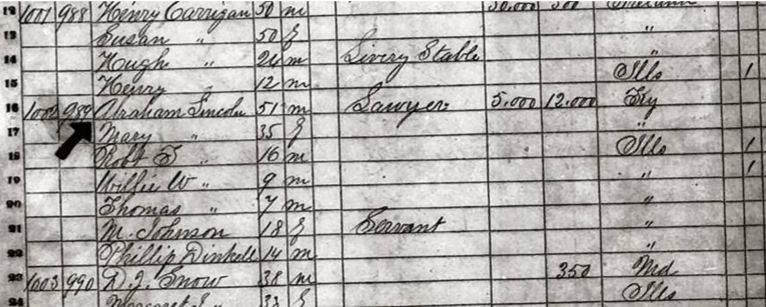 12 1001 988 Henry Carrigan 50 m 30.000 500 Ireland
13 Susan " 50 f "
14 Hugh " 26 m Livery Stable "
15 Henry " 12 m Ills 1
16 1002 989 Abraham Lincoln 51 m Lawyer 5.000 12.000 Ky
17 Mary " 35 f "
18 Robt T " 16 m Ills 1
19 Willie W " 9 m " 1
20 Thomas " 7 m "
21 M. Johnson 18 f Servant "
22 Phillip Dinkell 14 m "
23 1003 990 D. J. Snow 38 m 350 Md
24 Margaret 33 f Ills